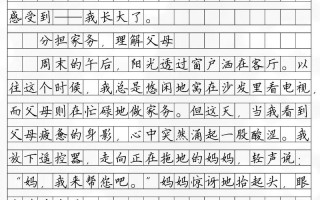 感受到——我长大了。
分担家务，理解父母
周末的午后，阳光透过窗户洒在客厅。以
往这个时候，我总是悠闲地窝在沙发里看电视，
而父母则在忙碌地做家务。但这天，当我看到
父母疲惫的身影，心中突然涌起一股酸涩。我
放下遥控器，走向正在拖地的妈妈，轻声说：
“妈，我来帮您吧。”妈妈惊讶地抬起头，眼